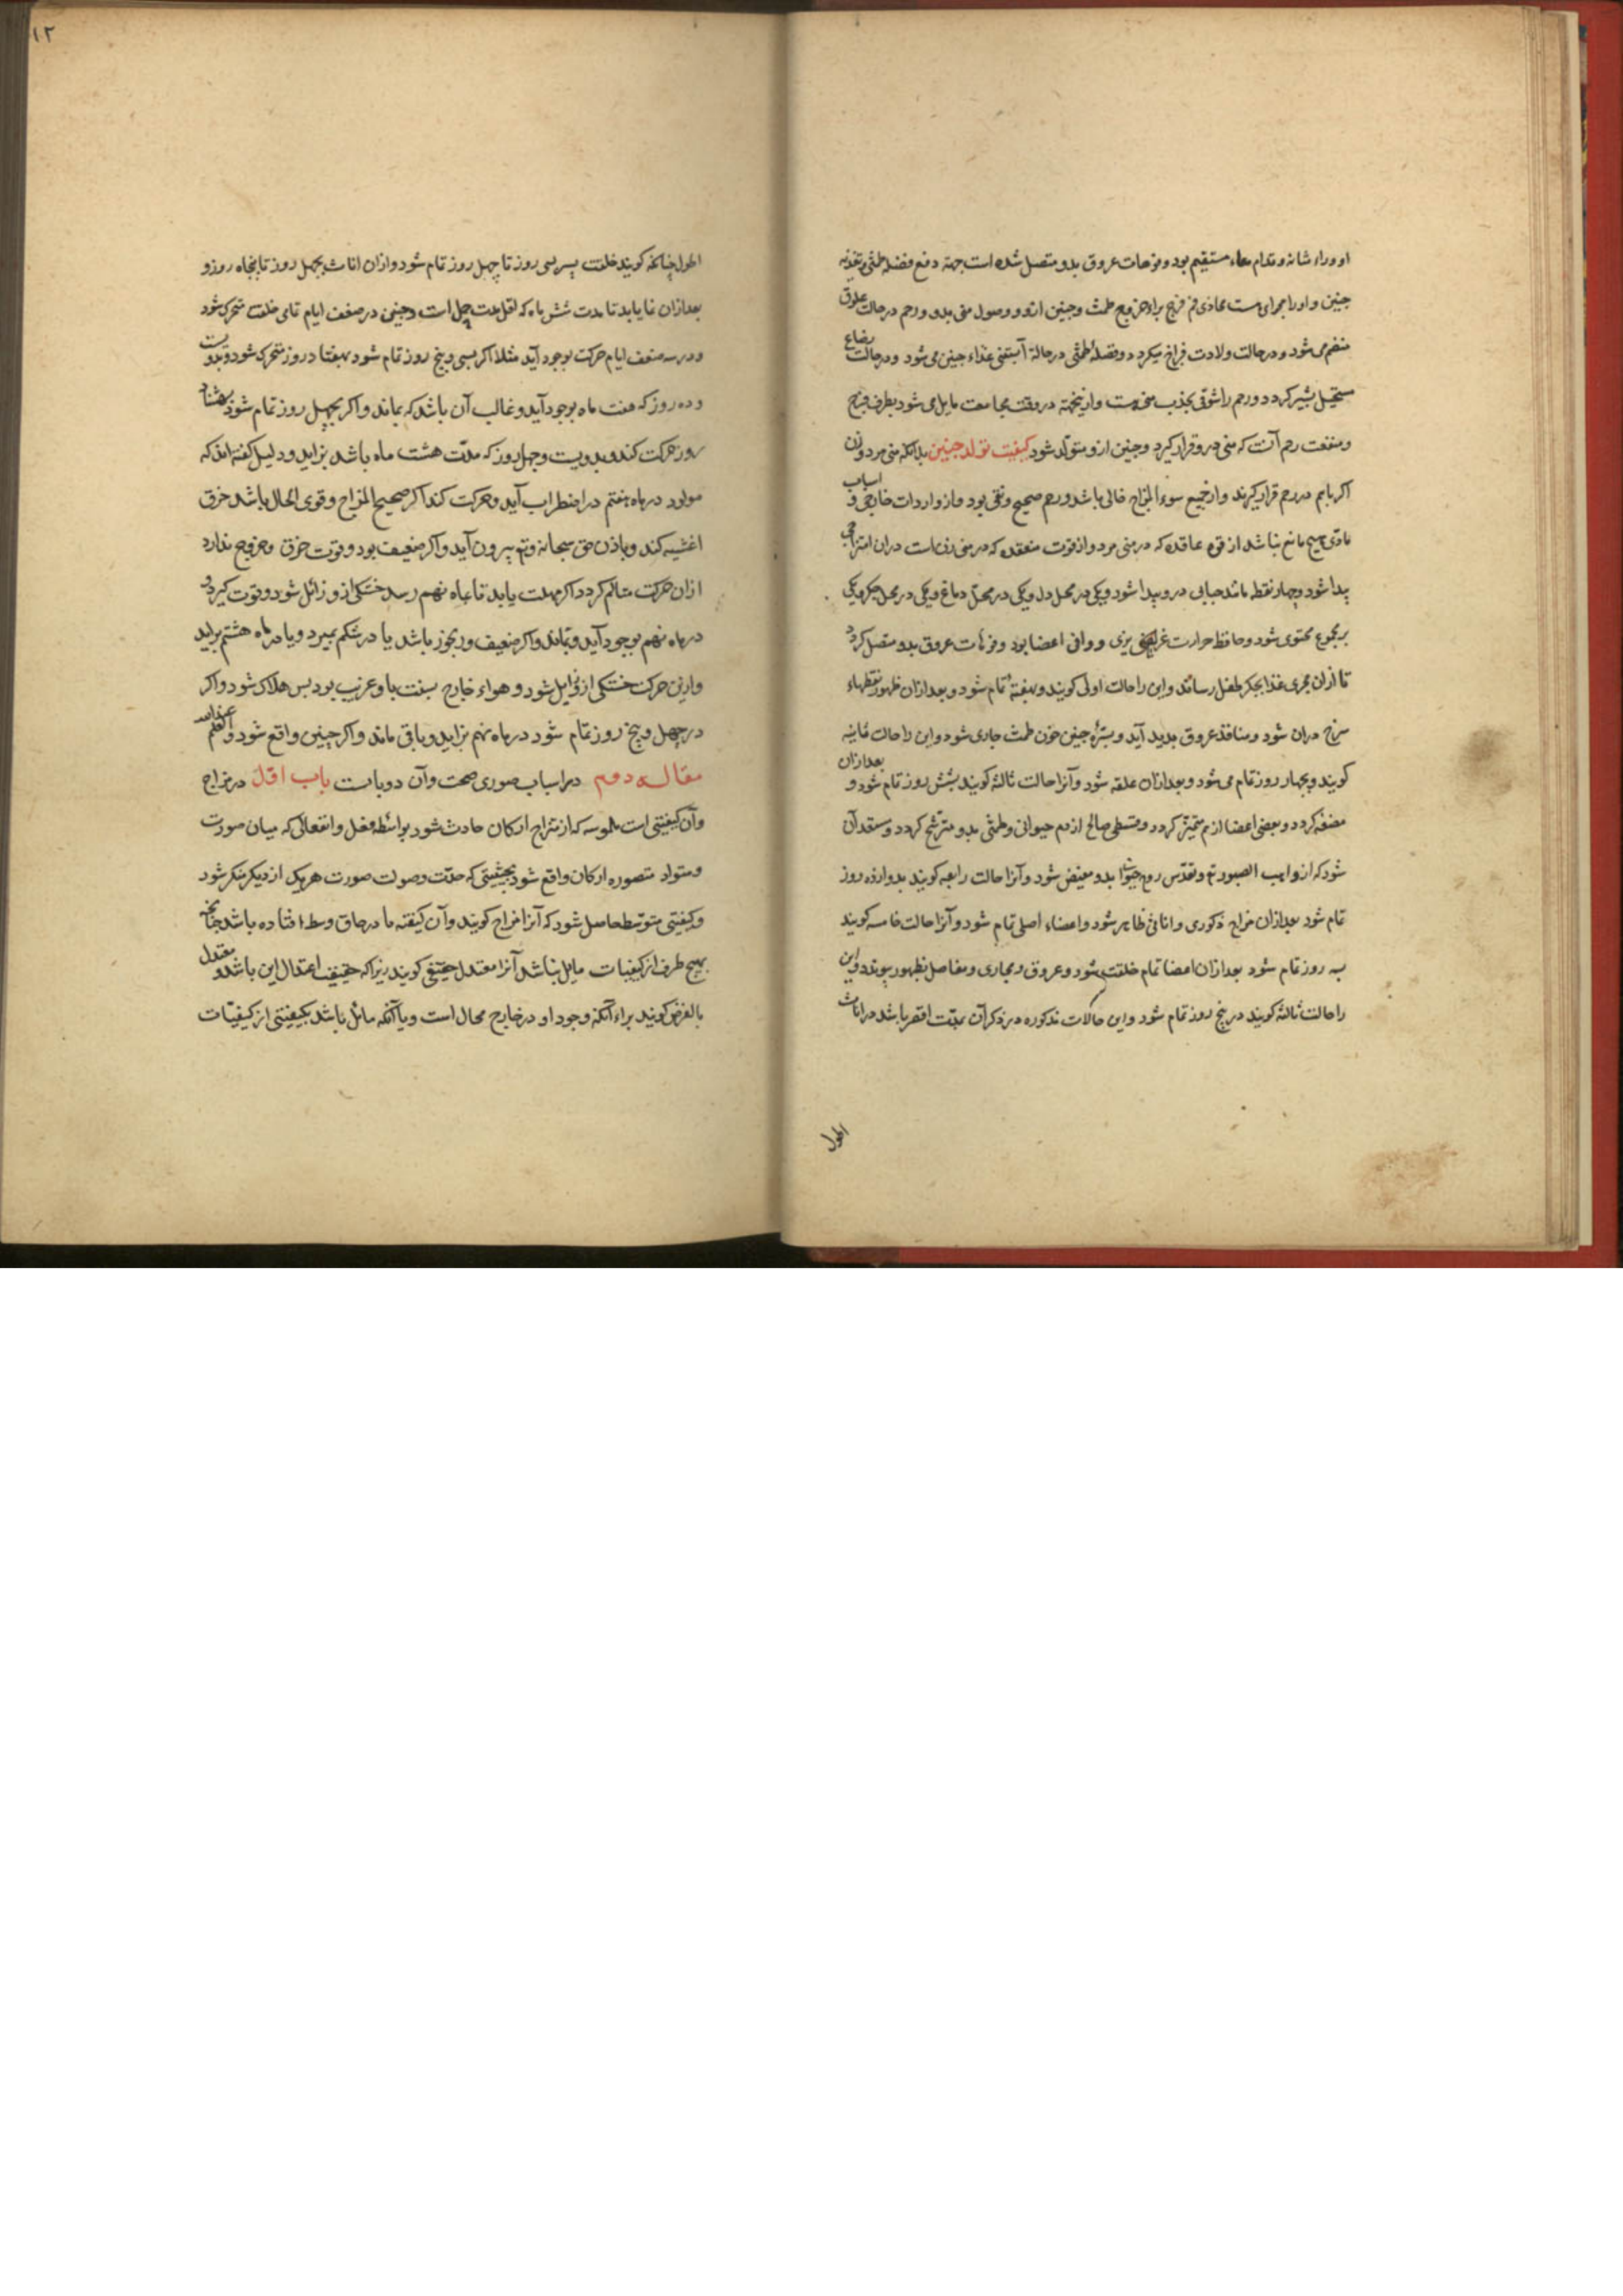 او وراء شانه و قدام معاء مستقیم بود و فوهات عروق بدو متصل شده است جهة دفع فضله طمثی و تغذیه
جنین و او را مجرای ست محاذی فم فرج براء خروج طمث و جنین ازو و وصول منی بدو و رحم در حالت علوق
منضم می شود و در حالت ولادت فراخ میکردد و فضلهٔ طمثی در حالة آبستنی غذاء جنین می شود و در حالت رضاع
مستحیل بشیر کردد و رحم را شوقی بجذب منی هست و ازینجهة در وقت مجامعت مایل می شود بطرف فرج
و منفعت رحم آنست که منی درو قرار کیرد و جنین ازو متولد شود کیفیت تولد جنین بدانکه منی مرد و زن
اکر باهم در رحم قرار کیرند و از جمیع سوء المزاج خالی باشد و رحم صحیح و نقی بود و از واردات خارجی و اسباب
مادی هیچ مانع نباشد از قوه عاقده که در منی مرد و از قوت منعقده که در منی زن است دران امتزاجی
پیدا شود و چهار نقطه مانند حبابی درو پیدا شود و یکی در محل دل و یکی در محل دماغ و یکی در محل جکر و یکی
بر مجموع محتوی شود و حافظ حرارت غریزی و واقی اعضا بود و فوهات عروق بدو متصل کردد
تا ازان مجری غذا بجکر طفل رساند و این را حالت اولی کویند و بهفتهٔ تمام شود و بعد ازان ظهور نقطهاء
سرخ دران شود و منافذ عروق بدید آید و بسرهٔ جنین خون طمث جاری شود و این را حالت ثانیه
کویند و بچهار روز تمام می شود و بعد ازان علقه شود و آنرا حالت ثالثه کویند بشش روز تمام شود و بعد ازان
مضغه کردد و بعضی اعضا از هم متمیز کردد و قسطی صالح از دم حیوانی و طمثی بدو مترشح کردد و مستعد آن
شود که از واهب الصور تعالی و تقدس روح حیوانی بدو مفیض شود و آنرا حالت رابعه کویند بدوازده روز
تمام شود بعد ازان مزاج ذکوری و اناثی ظاهر شود و اعضاء اصلی تمام شود و آنرا حالت خامسه کویند
به روز تمام شود بعد ازان اعضا تمام خلقت شود و عروق و مجاری و مفاصل بظهور پیوندد و این
را حالت ثالثه کویند در پنج روز تمام شود و این حالات مذکوره در ذکران بمدت اقصر باشد در اناث
اطول
۱۲
اطول چنانکه کویند خلقت پسر بسی روز تا چهل روز تمام شود و ازان اناث بچهل روز تا پنجاه روز و
بعد ازان نما یابد تا مدت شش ماه که اقل مدت حمل است و جنین در ضعف ایام تمامی خلقت متحرک شود
و در سه ضعف ایام حرکت بوجود آید مثلا اکر بسی و پنج روز تمام شود بهفتاد روز متحرک شود و بدویست
و ده روز که هفت ماه بوجود آید و غالب آن باشد که بماند و اکر بچهل روز تمام شود بهشتاد
روز حرکت کند و بدویست و چهل روز که مدت هشت ماه باشد بزاید و دلیل کفته اند که
مولود در ماه هفتم در اضطراب آید و حرکت کند اکر صحیح المزاج و قوی الحال باشد خرق
اغشیه کند و باذن حق سبحانه و تع بیرون آید و اکر ضعیف بود و قوت خرق و خروج ندارد
ازان حرکت متالم کردد اکر مهلت یابد تا بماه نهم رسد خستکی ازو زائل شود و قوت کیرد و
در ماه نهم بوجود آید و بماند و اکر ضعیف و رنجور باشد یا در شکم بمیرد و یا در ماه هشتم بزاید
و ازین حرکت خستکی ازو زایل نشود و هواء خارج بنسبت با او غریب بود پس هلاک شود و اکر
در چهل و پنج روز تمام شود در ماه نهم بزاید و باقی ماند و اکر چنین واقع شود والعلم عند الله
مقاله دوم در اسباب صوری صحت و آن دو بابست باب اول در مزاج
و آن کیفیتی است ملموسه که از امتزاج ارکان حادث شود بواسطه فعل و انفعالی که میان صورت
و مواد متصوره ارکان واقع شود بحیثیتی که حدت و صولت صورت هریک از دیکر منکسر شود
و کیفیتی متوسط حاصل شود که آنرا مزاج کویند و آن کیفیته ما در حاق وسط افتاده باشد چنانکه
بهیچ طرف از کیفیات مایل نباشد آنرا معتدل حقیقی کویند زیرا که حقیقت اعتدال این باشد و معتدل
بالفرض کویند براء آنکه وجود او در خارج محال است و یا آنکه مائل باشد بکیفیتی از کیفیات